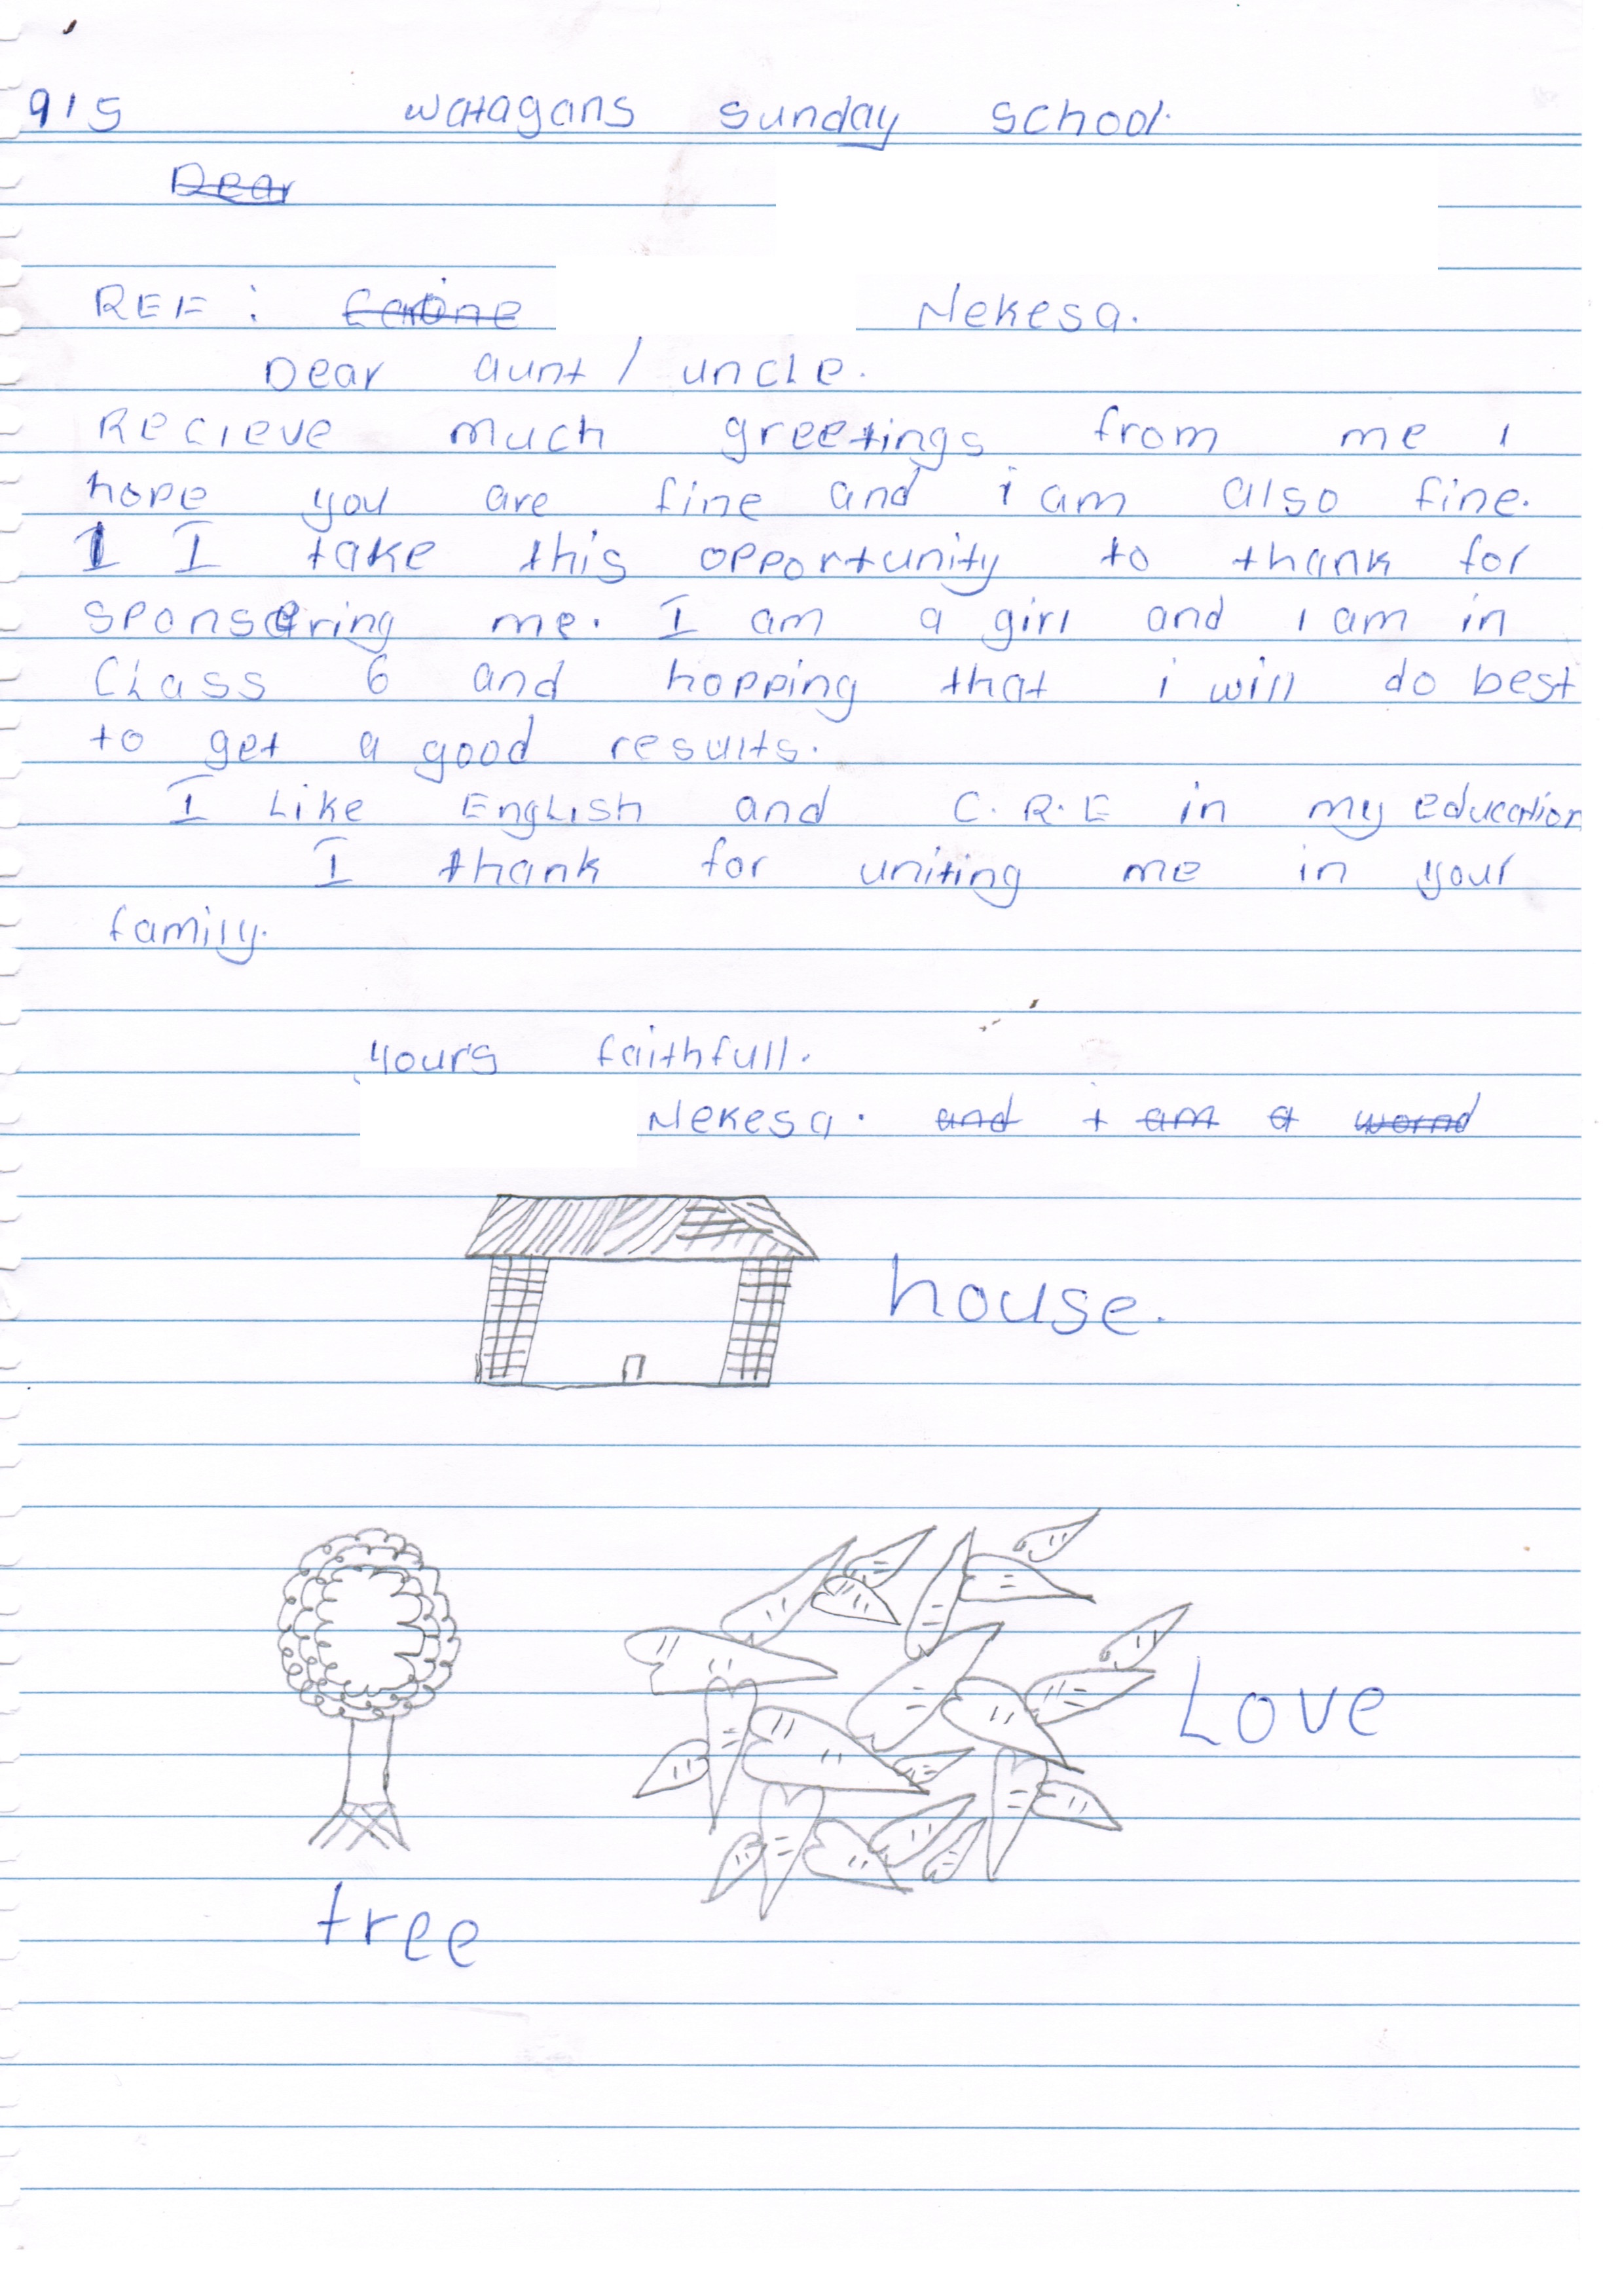 915 watagans sunday school.
Dear
REF : Nekesa.
Dear aunt / uncle.
Recieve much greetings from me i
hope you are fine and i am also fine.
I I take this opportunity to thank for
sponsering me. I am a girl and i am in
Class 6 and hopping that i will do best
to get a good results.
I Like English and C.R.E in my education
I thank for uniting me in your
family.
yours faithfull.
Nekesa. and i am a
house.
Love
tree